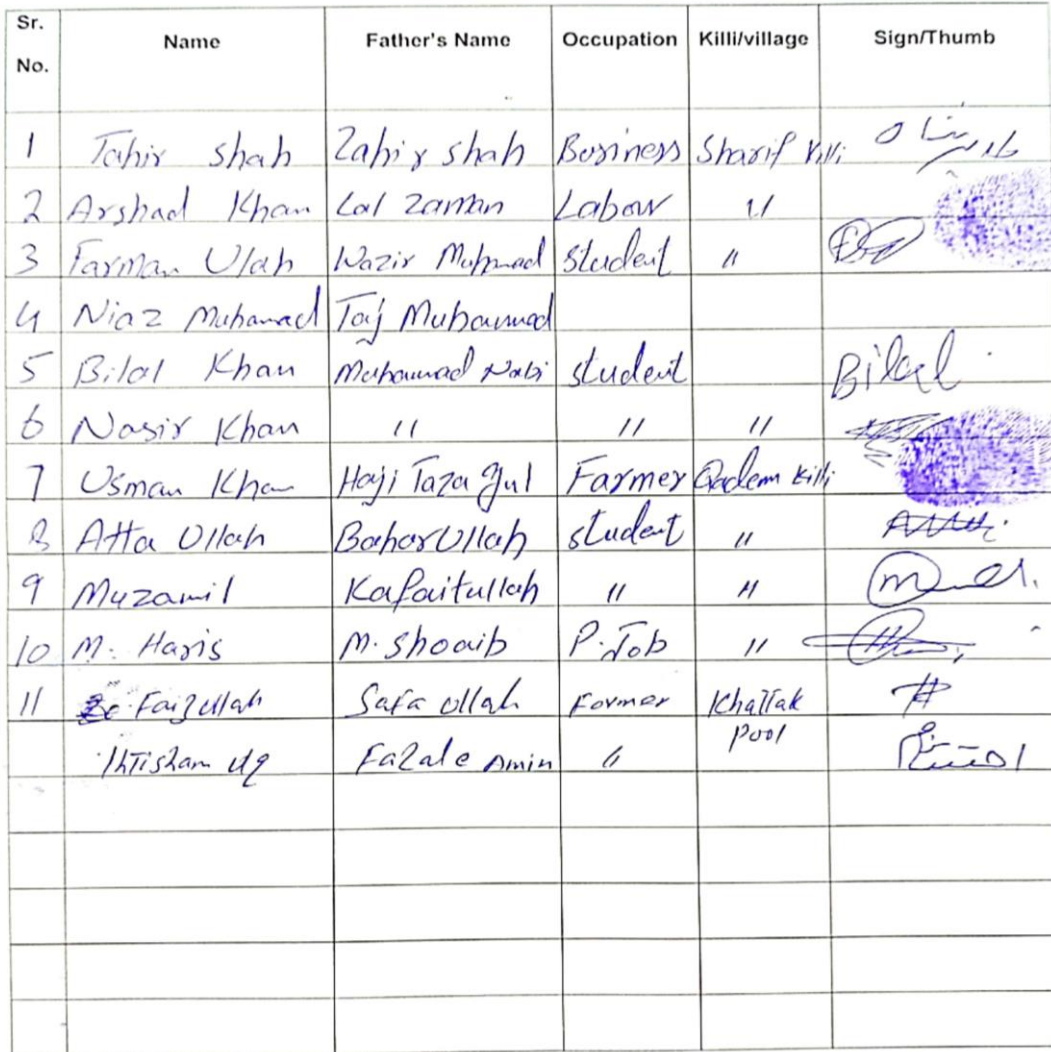 Sr. No. Name Father's Name Occupation Killi/village Sign/Thumb
1 Tahir shah Zahir shah Business Sharif Killi طاہر شاہ
2 Arshad Khan Lal Zaman Labour 11
3 Farman Ullah Wazir Muhmmad student 11
4 Niaz Muhamad Taj Muhammad
5 Bilal Khan Muhammad Nabi student Bilal
6 Nasir Khan 11 11 11
7 Usman Khan Haji Taza Gul Farmer Qadem Killi
8 Atta Ullah Bahar Ullah student 11
9 Muzamil Kafaitullah 11 11
10 M. Haris M. Shoaib P. Job 11
11 Faizullah Safa ullah Formor Khattak Pool
Ihtisham Fazale Amin 11